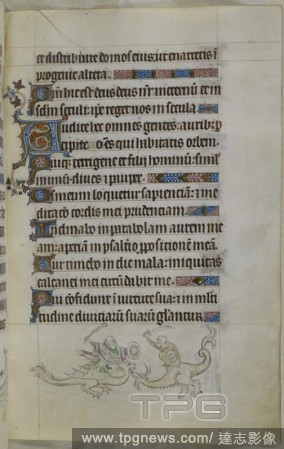 et distribuite domos eius: ut enarretis i
progenie altera.
hic est deus deus nr in eternu et in
sclm seculi: ipe reget nos in secula
Audite hec omnes gentes: aurib: p
cipite oes qui habitatis orbem.
terrigene et filij hominu: sim
innum: diues et pauper.
Os meum loquetur sapienciam: et me
ditaco cordis mei prudenciam
Inclinabo in parabolam aurem me
am: aperiam in psaltio ppositionem mea
Cur timebo in die mala: iniquitas
calcanei mei circudabit me.
Qui confidunt i uirtute sua: et in mlti
tudine diuiciaru suaru gloriantur
TPG
www.tpgnews.com/達志影像